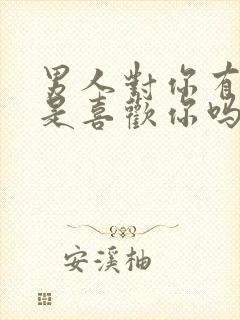 男人對你有
是喜歡你嗎
安溪柚